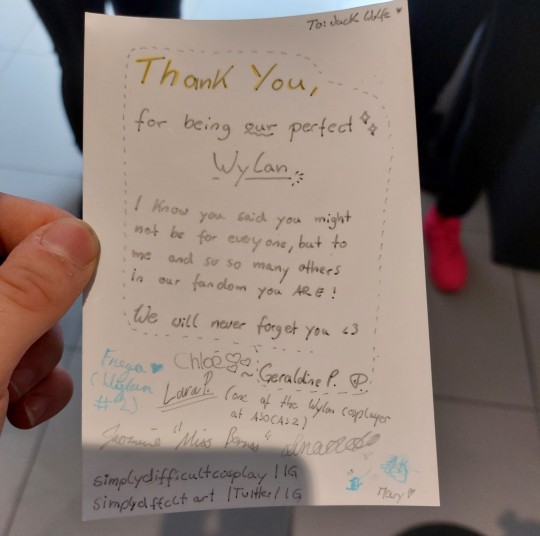 To: Jack Wolfe ♥
Thank You,
for being our perfect
Wylan
I know you said you might
not be for everyone, but to
me and so so many others
in our fandom you ARE!
We will never forget you <3
Chloé
Freya ♥
(Wylan
#2)
~Geraldine P.
Lara P.
(one of the Wylan cosplayer
at ASOCAS2)
"Miss
Mary ♥
simplydifficultcosplay | IG
simplydffclt art | Twitter / IG